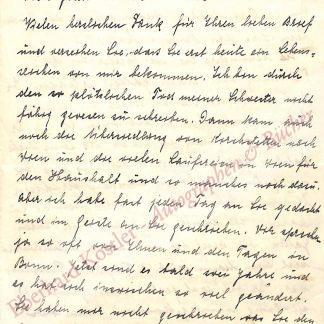 Vielen herzlichen Dank für Ihren lieben Brief
und verzeihen Sie, dass Sie erst heute ein Lebens-
zeichen von mir bekommen. Ich bin durch
den so plötzlichen Tod meiner Schwester nicht
fähig gewesen zu schreiben. Dann kam auch
noch die Übersiedlung von nach
Wien und die vielen Laufereien in Wien für
den Haushalt und so manches noch dazu.
Aber ich habe fast jeden Tag an Sie gedacht
und im Geiste an Sie geschrieben. Wir sprechen
ja so oft von Ihnen und den Tagen in
Bonn. Jetzt sind es bald zwei Jahre und
es hat sich inzwischen so viel geändert.
Sie haben mir nicht geschrieben, was Sie den
Eberhard Köstler Autographen & Bücher